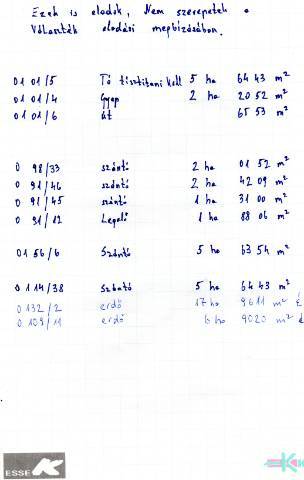 Ezek is eladók, Nem szerepelnek a
Választék eladási megbízásában.
01 01/5 Tó tisztítani kell 5 ha 64 43 m²
01 01/4 Gyep 2 ha 20 52 m²
01 01/6 út 65 53 m²
0 98/33 szántó 2 ha 01 52 m²
0 91/46 szántó 2 ha 42 09 m²
0 91/45 szántó 1 ha 31 00 m²
0 91/12 Legelő 1 ha 88 06 m²
01 56/6 Szántó 5 ha 63 54 m²
0 114/38 Szántó 5 ha 64 43 m²
0 132/2 erdő 17 ha 9611 m² É
0 109/11 erdő 6 ha 9020 m² é
ESSE